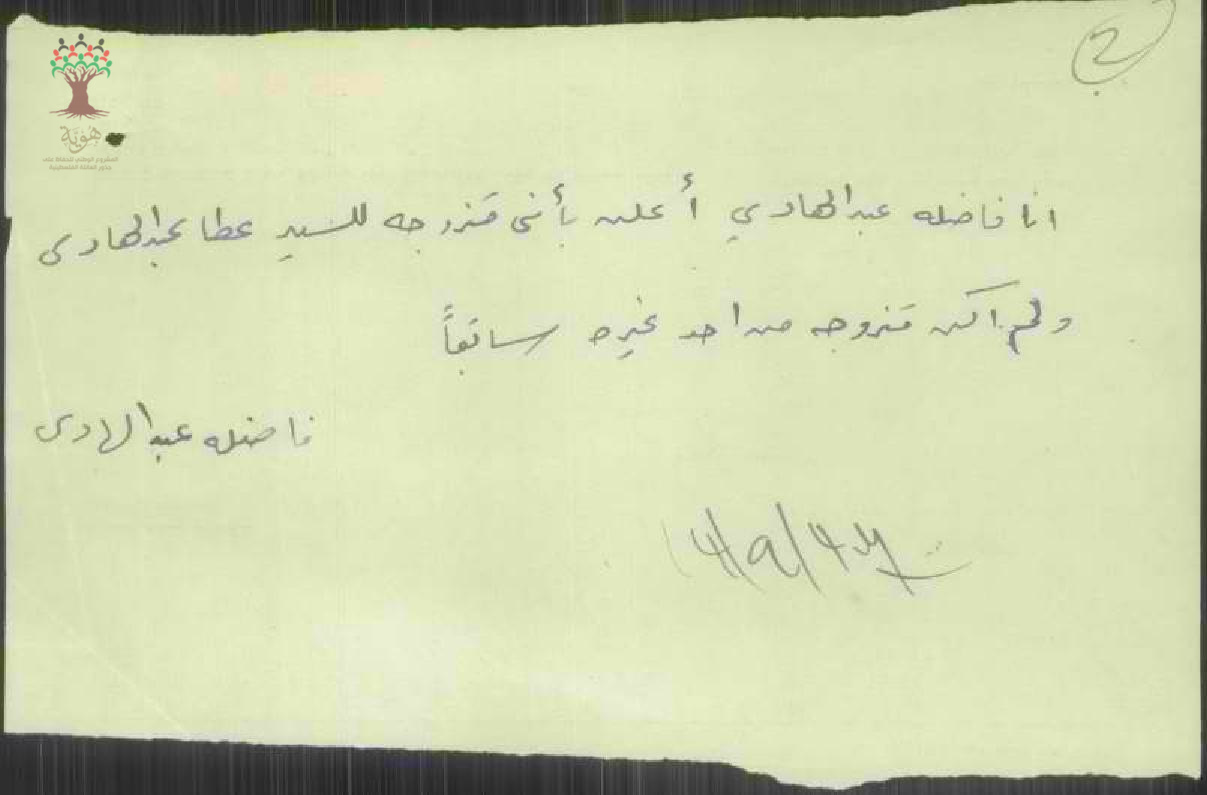 2
هوية
المشروع الوطني للحفاظ على
جذور العائلة الفلسطينية
انا فاضله عبدالهادي أعلن بأنني متزوجه للسيد عطا عبدالهادى
ولم اكن متزوجه من احد غيره سابقاً
فاضله عبدالهادى